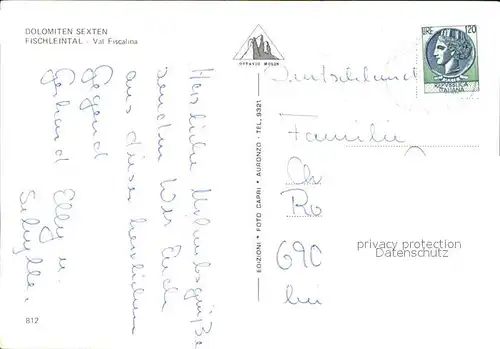 DOLOMITEN SEXTEN
FISCHLEINTAL - Val Fiscalina
OTTAVIO MOLIN
LIRE 120
REPUBBLICA
ITALIANA
Deutschland
Familie
Ro
690
bei
privacy protection
Datenschutz
EDIZIONI • FOTO CAPRI • AURONZO - TEL. 9321
Herzliche Urlaubsgrüße
senden Wir Euch
aus dieser herrlichen
Gegend
Gerhard Elly u.
Sibylle.
812